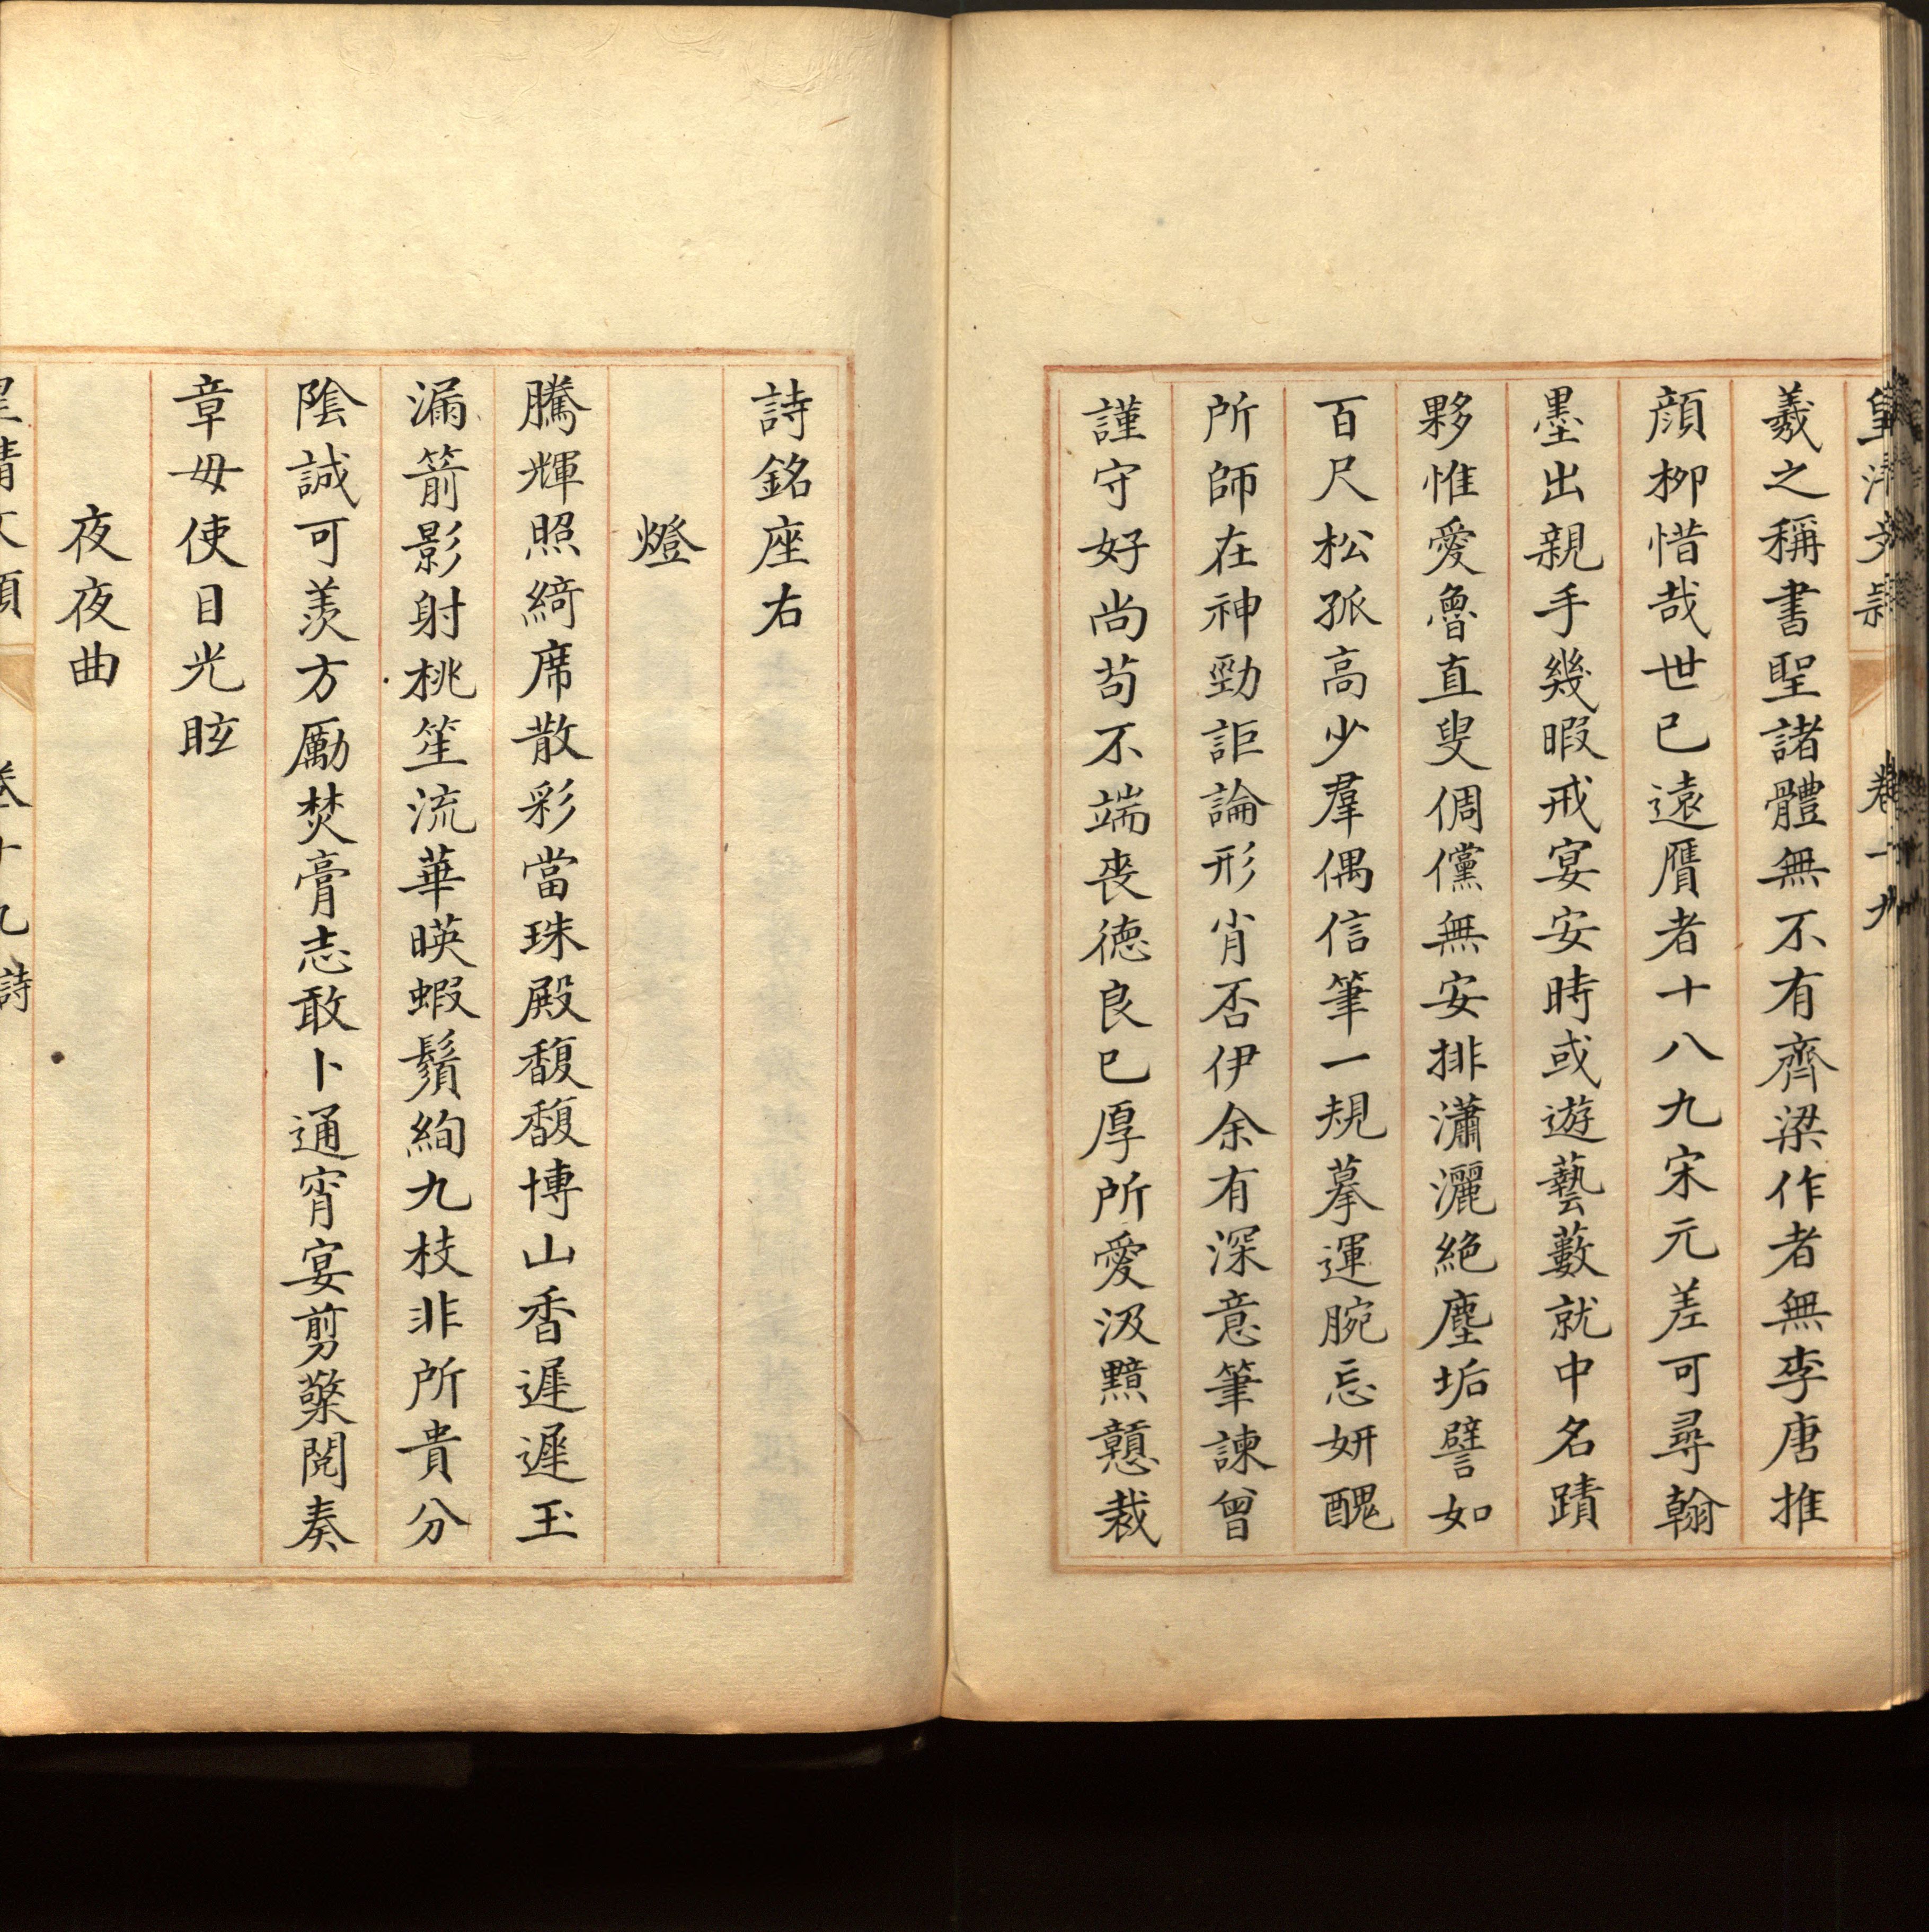 羲之稱書聖諸體無不有齊梁作者無李唐推
顔柳惜哉世已遠贋者十八九宋元差可尋翰
墨出親手幾暇戒宴安時或遊藝藪就中名蹟
夥惟愛魯直叟倜儻無安排瀟灑絶塵垢譬如
百尺松孤高少羣偶信筆一規摹運腕忘妍醜
所師在神勁詎論形肖否伊余有深意筆諫曾
謹守好尚苟不端喪德良已厚所愛汲黯戇裁
詩銘座右
燈
騰輝照綺席散彩當珠殿馥馥博山香遲遲玉
漏箭影射桃笙流華暎蝦鬚絢九枝非所貴分
陰誠可羨方勵焚膏志敢卜通宵宴剪檠閱奏
章毋使目光眩
夜夜曲
卷十九 詩